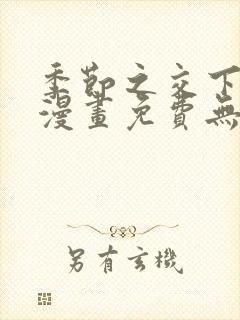 季節之交下
漫畫免費無
另有玄機